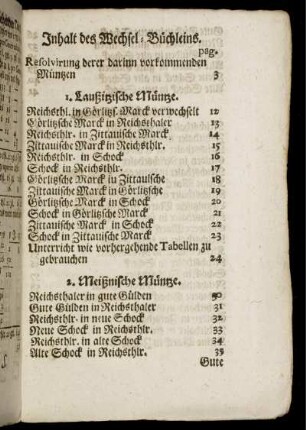 Inhalt des Wechsel-Büchleins.
pag.
Resolvirung derer darinn vorkommenden
Müntzen 3
1. Laußitzische Müntze.
Reichsthl. in Görlitzs. Marck verwechselt 12
Görlitzsche Marck in Reichsthaler 13
Reichsthlr. in Zittauische Marck 14
Zittauische Marck in Reichsthlr. 15
Reichsthlr. in Schock 16
Schock in Reichsthlr. 17
Görlitzsche Marck in Zittauische 18
Zittauische Marck in Görlitzsche 19
Görlitzsche Marck in Schock 20
Schock in Görlitzsche Marck 21
Zittauische Marck in Schock 22
Schock in Zittauische Marck 23
Unterricht wie vorhergehende Tabellen zu
gebrauchen 24
2. Meißnische Müntze.
Reichsthaler in gute Gülden 30
Gute Gülden in Reichsthaler 31
Reichsthlr. in neue Schock 32
Neue Schock in Reichsthlr. 33
Reichsthlr. in alte Schock 34
Alte Schock in Reichsthlr. 35
Gute